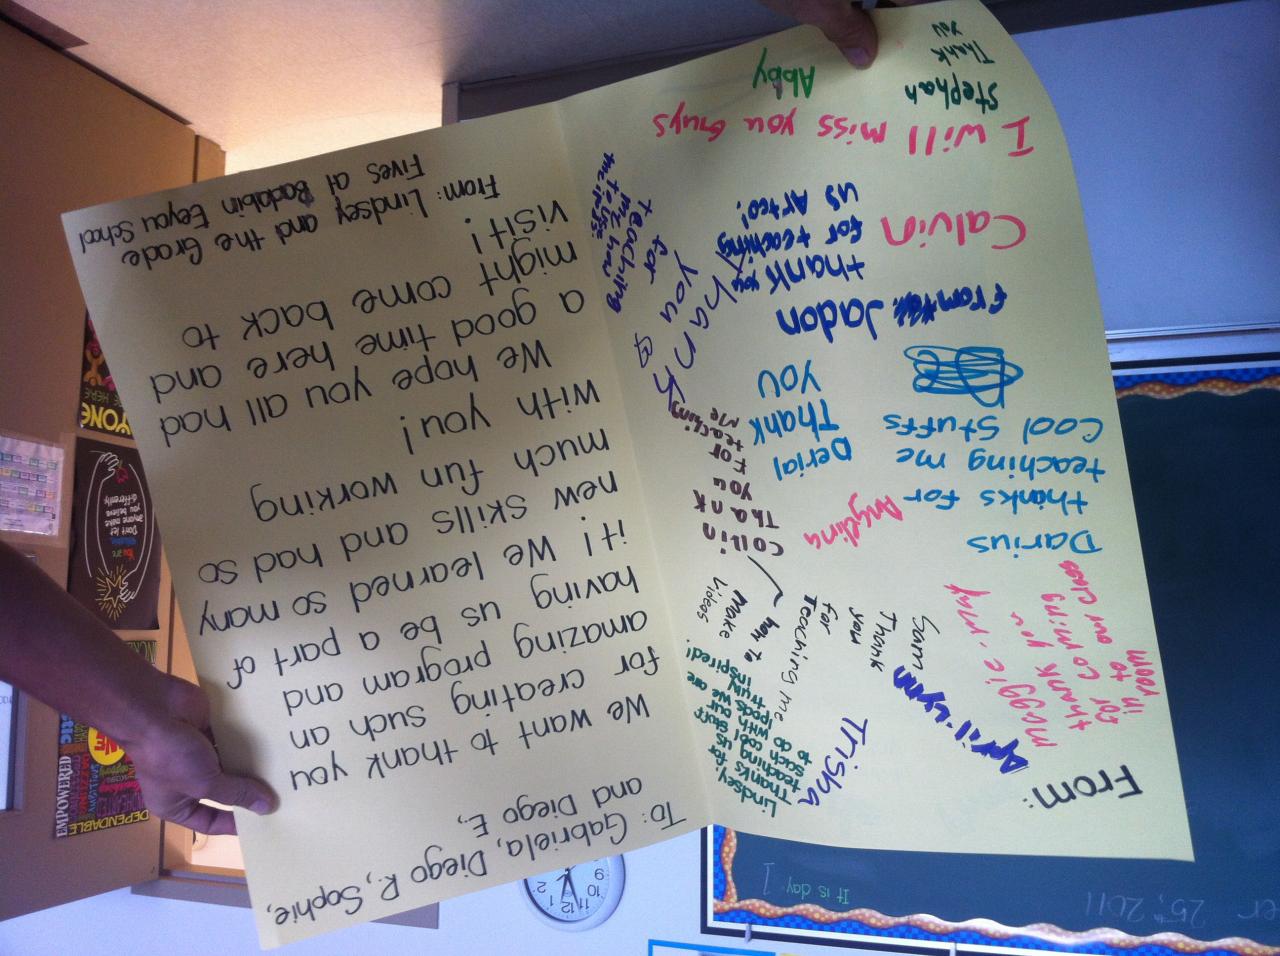 To: Gabriela, Diego R., Sophie,
and Diego E,
We want to thank you
for creating such an
amazing program and
having us be a part of
it! We learned so many
new skills and had so
much fun working
with you!
We hope you all had
a good time here and
might come back to
visit!
From: Lindsey and the Grade
Fives at Badabin Eeyou School
From:
April-Lynn
Trisha
Lindsey,
Thanks for
teaching us
such cool stuff
to do with our
ipods we are
truly
inspired!
Sam
Thank
you
for
Teaching me
how to
make
videos
maggie-may
thank you
for coming
to
Darius
thanks for
teaching me
Cool Stuffs
Angelina
Collin
Thank
you
For
teaching
me
Derial
Thank
you
From
Jadon
thank you
for teaching
us Artco!
Thank
you
for
teaching
me how
to use
the ipods
Calvin
I will miss you Guys
Abby
Stephan
Thank
you
25th, 2011
It is day 1
EMPOWERED
DEPENDABLE
AMBITIOUS
Don't let
anyone make
you believe
differently.
You are
12
11
10
9
8
7
6
5
2